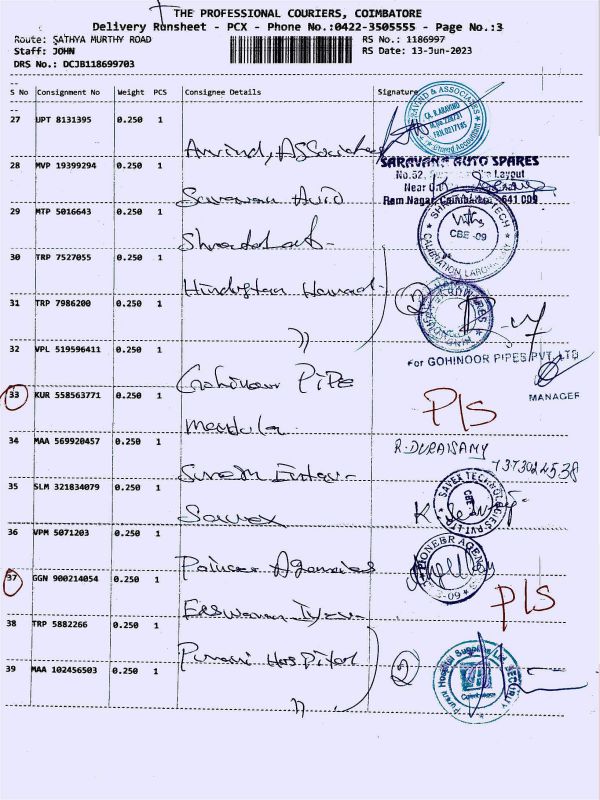 THE PROFESSIONAL COURIERS, COIMBATORE
Delivery Runsheet - PCX - Phone No.:0422-3505555 - Page No.:3
Route: SATHYA MURTHY ROAD RS No.: 1186997
Staff: JOHN RS Date: 13-Jun-2023
DRS No.: DCJB118699703
S No Consignment No Weight PCS Consignee Details Signature
27 UPT 8131395 0.250 1
Arvind Associates
28 MVP 19399294 0.250 1 SARAVANA AUTO SPARES
Saravan Auto No.52, Layout
Near
Ram Nagar, Coimbatore - 641 009
29 MTP 5016643 0.250 1
CALIBRATION LABORATORY
CBE -09
30 TRP 7527055 0.250 1
Hindustan 2
31 TRP 7986200 0.250 1
"
32 VPL 519596411 0.250 1 For GOHINOOR PIPES PVT LTD
Gohinoor Pipe MANAGER
33 KUR 558563771 0.250 1 P/S
34 MAA 569920457 0.250 1 R. DURAISAMY
7373024538
35 SLM 321834079 0.250 1 SAVEX TECHNOLOGIES PVT. LTD
Savex CBE
36 VPM 5071203 0.250 1
Agencies
37 GGN 900214054 0.250 1 P/S
Eswaran
38 TRP 5882266 0.250 1
Hospital 2
39 MAA 102456503 0.250 1 Hospital Supplies SECURITY
Coimbatore
"